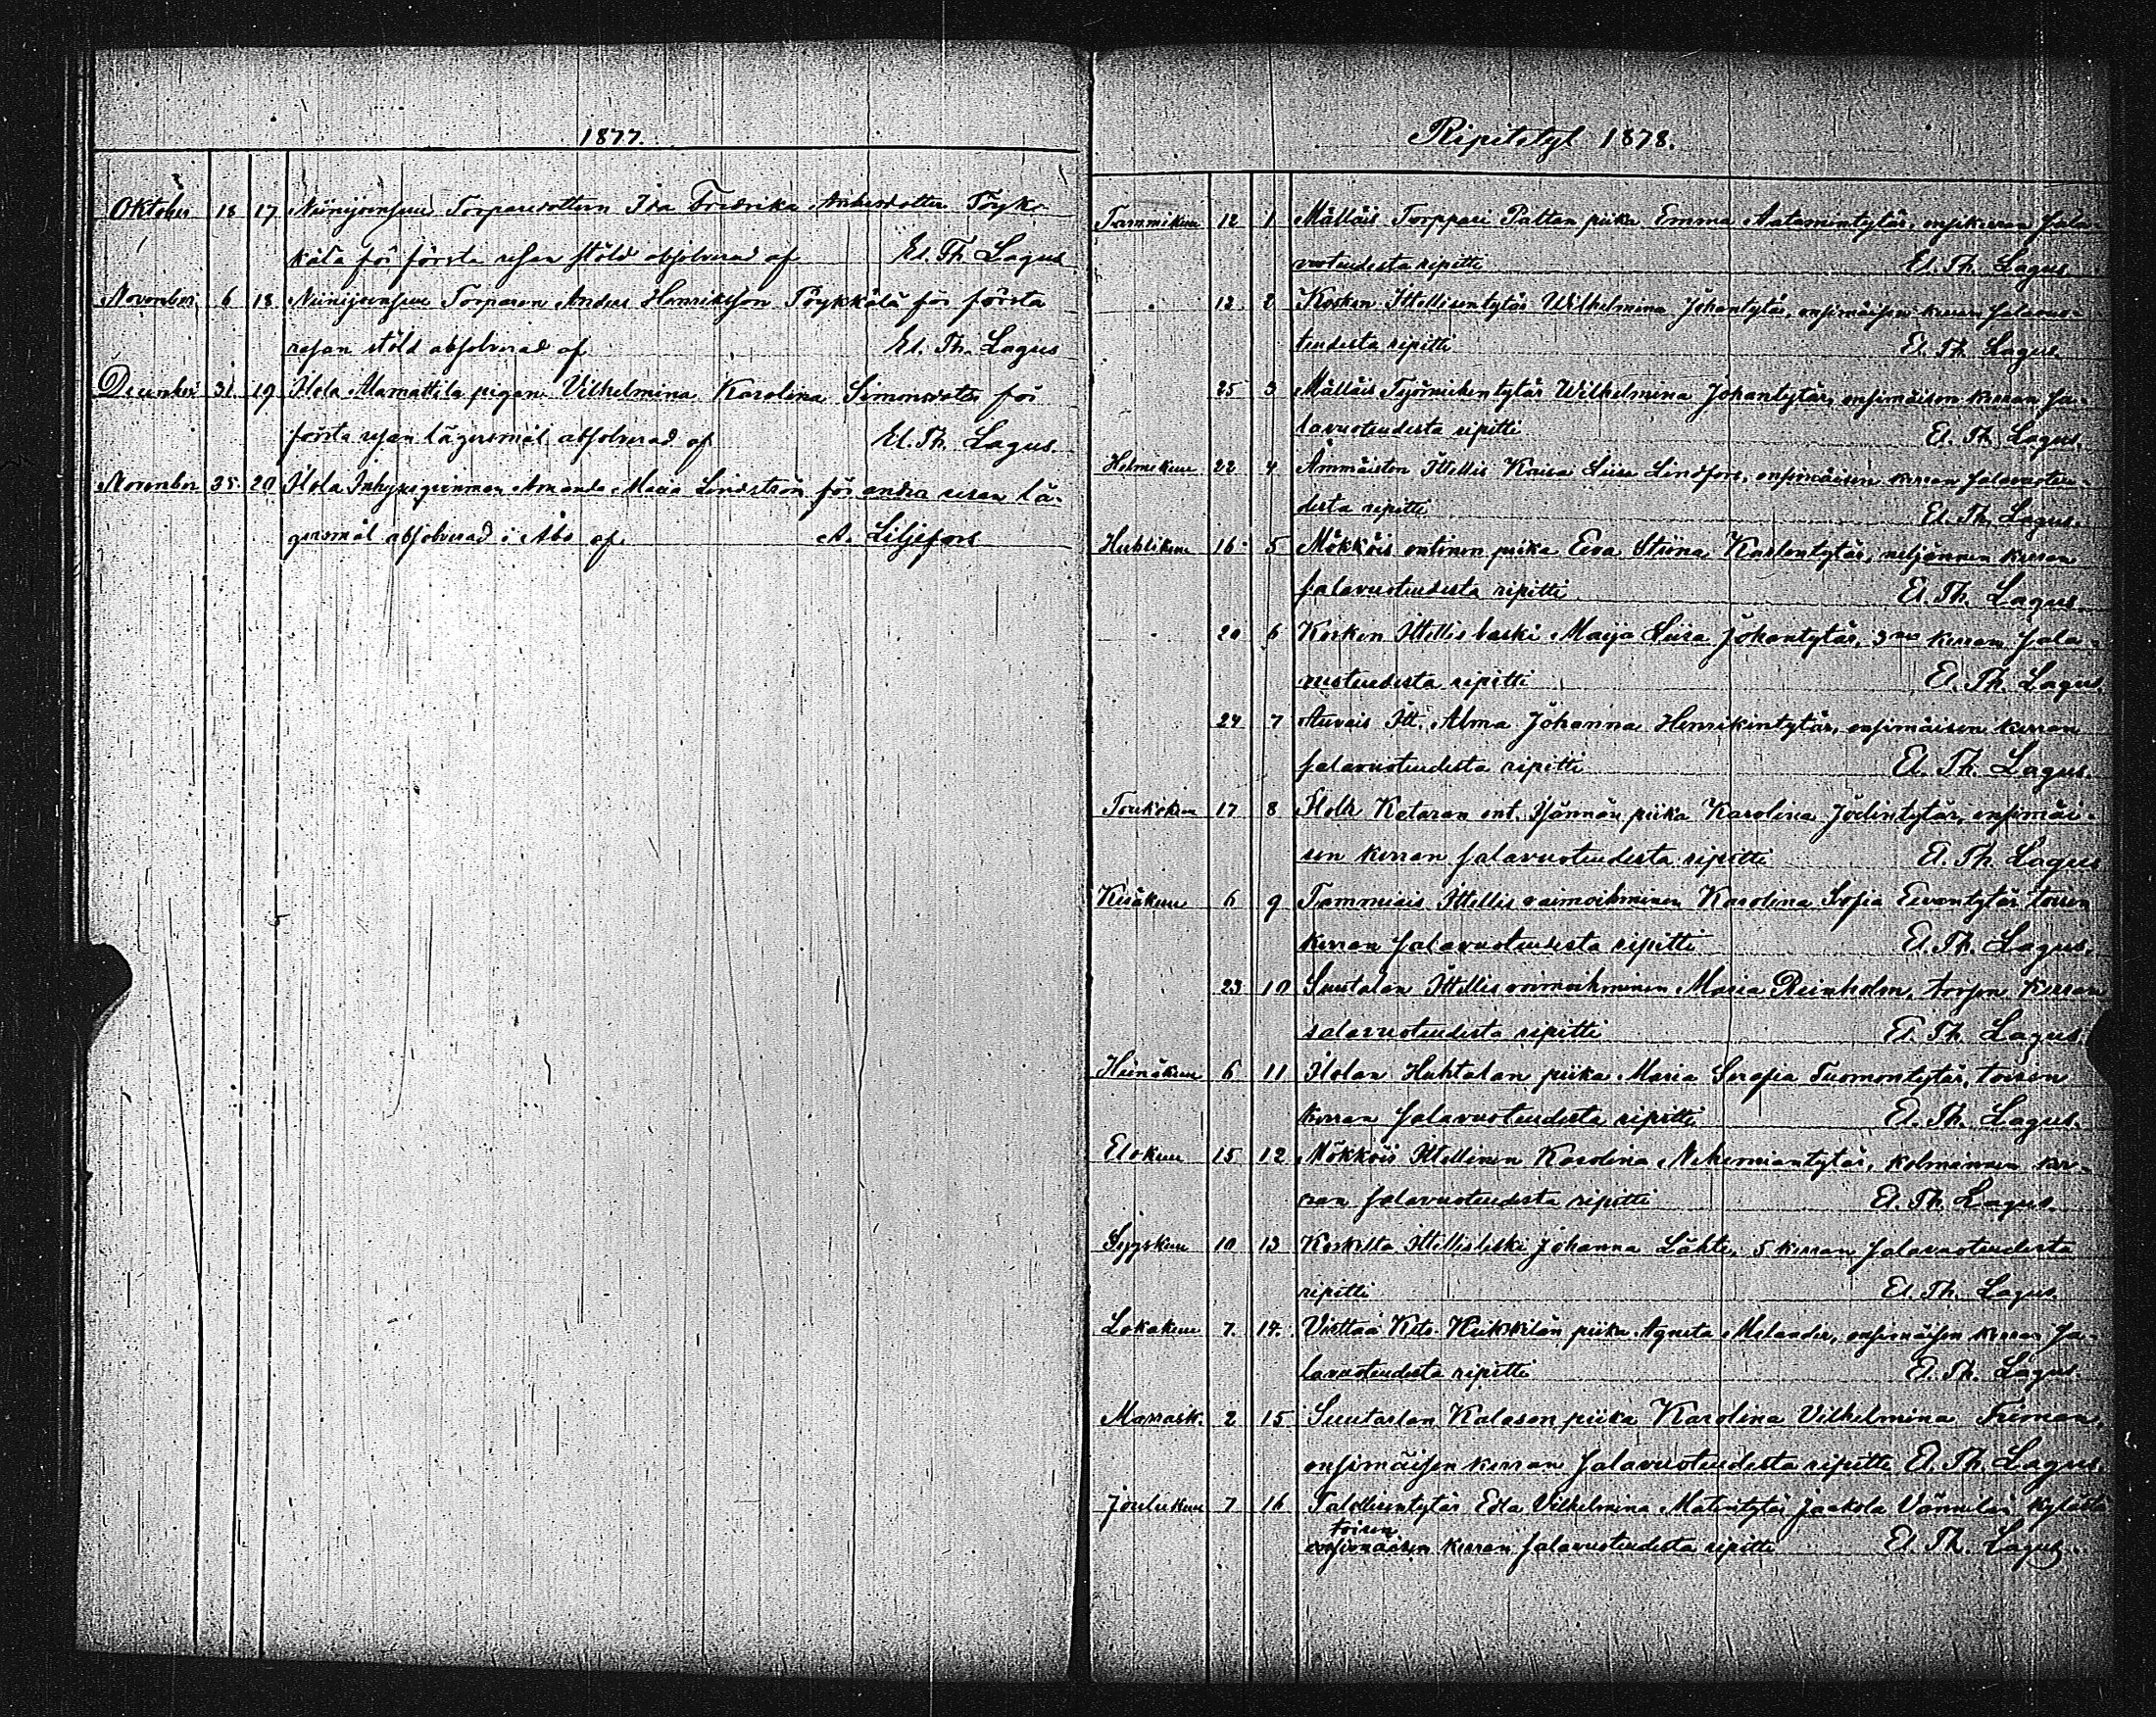 1877.
Oktober 18 17 Niinijoensuu Torparedottern Ida Fredrika Andersdotter Pöyk-
kälä för första resan stöld absolverad af El. Th. Lagus
November 6 18 Niinijoensuu Torparen Anders Henriksson Pöykkälä för första
resan stöld absolverad af El. Th. Lagus
December 31 19 Ilola Mamattila pigan Vilhelmina Karolina Simonsdotter för
första resan lägersmål absolverad af El. Th. Lagus.
November 25 20 Ilola Inhysesqvinnan Amanda Maria Lindström för andra resan lä-
gersmål absolverad i Åbo af A. Liljefors
Ripitetyt 1878.
Tammikuu 12 1 Mälläis Torppari Paltan piika Emma Aatamintytär, ensikerran sala-
vuoteudesta ripitti El. Th. Lagus
" 12 2 Kosken Itellisentytär Wilhelmina Johantytär, ensimäisen kerran salavuo-
teudesta ripitti El. Th. Lagus.
25 3 Mälläis Työmiehentytär Wilhelmina Johantytär, ensimäisen kerran sa-
lavuoteudesta ripitti El. Th. Lagus.
Helmikuu 22 4 Ämmäisten Itellis Kaisa Liisa Lindfors, ensimäisen kerran salavuoteu-
desta ripitti El. Th. Lagus.
Huhtikuu 16 5 Mökköis entinen piika Eeva Stiina Kaarlentytär, neljännen kerran
salavuoteudesta ripitti El. Th. Lagus.
" 20 6 Kosken Itellis leski Maija Liisa Johantytär, 3nen kerran sala-
vuoteudesta ripitti El. Th. Lagus.
24 7 Auvais Itt. Alma Johanna Henrikintytär, ensimäisen kerran
salavuoteudesta ripitti El. Th. Lagus.
Toukokuu 17 8 Ilola Kataran ent. Isännän piika Karolina Joelintytär, ensimäi-
sen kerran salavuoteudesta ripitti El. Th. Lagus
Kesäkuu 6 9 Tammiais Itellis vaimoihminen Karolina Sofia Eevantytär toisen
kerran salavuoteudesta ripitti El. Th. Lagus.
23 10 Suutalan Itellis vaimoihminen Maria Reinholm, toisen kerran
salavuoteudesta ripitti El. Th. Lagus.
Heinäkuu 6 11 Ilolan Huhtalan piika Maria Serafia Tuomontytär, toisen
kerran salavuoteudesta ripitti El. Th. Lagus.
Elokuu 15 12 Mökköis Itellinen Karolina Nehemiantytär, kolmannen ker-
ran salavuoteudesta ripitti El. Th. Lagus.
Syyskuu 10 13 Koskelta Itellisleski Johanna Lähti, 5 kerran salavuoteudesta
ripitti El. Th. Lagus.
Lokakuu 7. 14. Virttaa Heikkilän piika Agneta Melander, ensimäisen kerran sa-
lavuoteudesta ripitti El. Th. Lagus.
Marrask. 2 15 Suutarlan Kalasen piika Karolina Vilhelmina Friman,
ensimäisen kerran salavuoteudesta ripitti El. Th. Lagus.
Joulukuu 7 16 Talollisentytär Edla Vilhelmina Matintytär Jaakola Vännilän kylästä
toisen
ensimäisen kerran salavuoteudesta ripitti El. Th. Lagus.